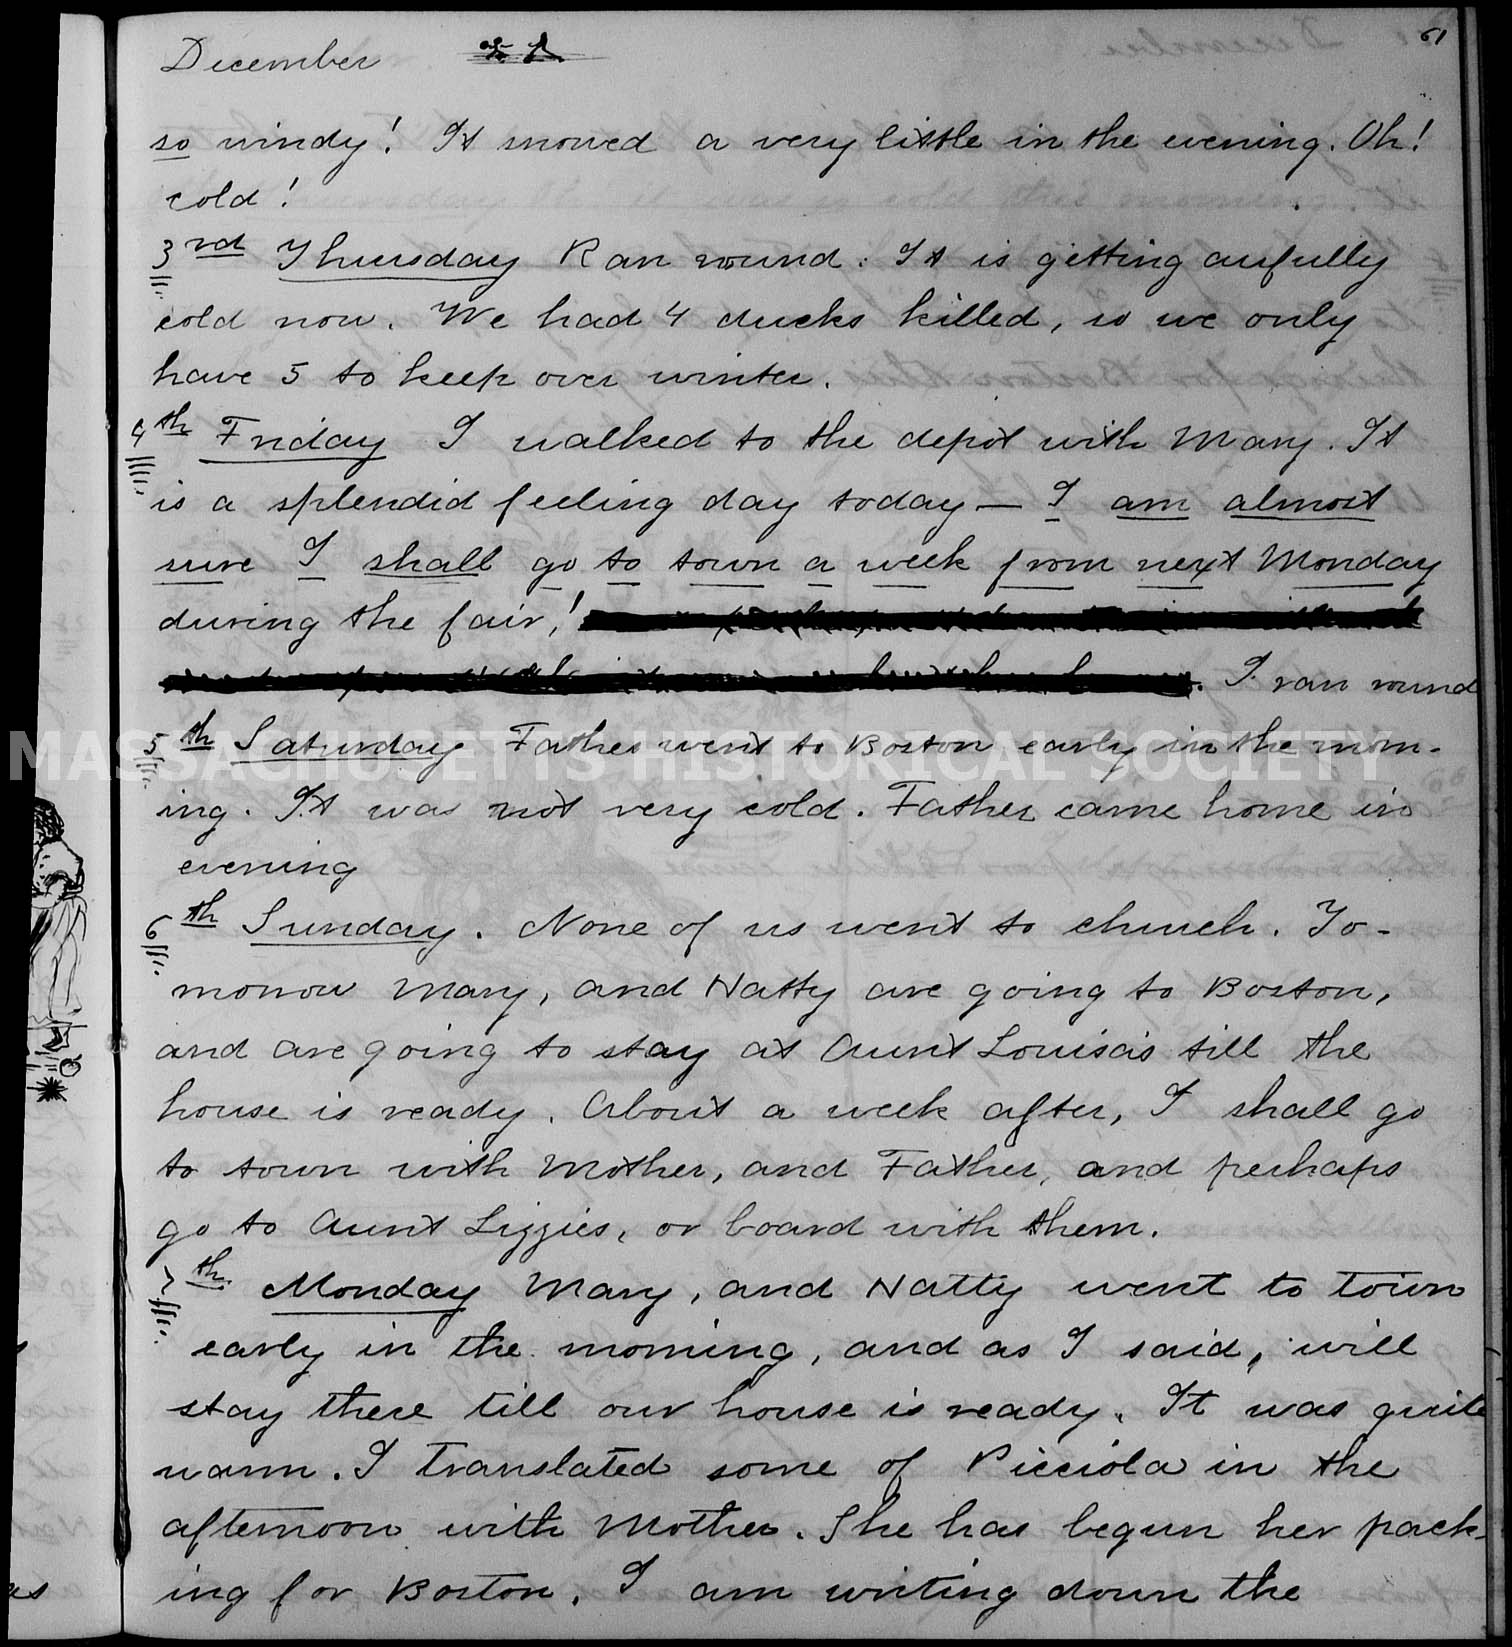 December
61
so windy! It snowed a very little in the evening. Oh!
cold!
3rd Thursday Ran round. It is getting aufully
cold now. We had 4 ducks killed, so we only
have 5 to keep over winter.
4th Friday I walked to the depot with Mary. It
is a splendid feeling day today — I am almost
sure I shall go to town a week from next Monday
during the fair!
. I ran round
5th Saturday Father went to Boston early in the morn-
ing. It was not very cold. Father came home in
evening
6th Sunday. None of us went to church. To-
morrow Mary, and Natty are going to Boston,
and are going to stay at Aunt Louisa's till the
house is ready. About a week after, I shall go
to town with Mother, and Father, and perhaps
go to Aunt Lizzies, or board with them.
7th Monday Mary, and Natty went to town
early in the morning, and as I said, will
stay there till our house is ready. It was quite
warm. I translated some of Picciola in the
afternoon with Mother. She has begun her pack-
ing for Boston. I am writing down the
MASSACHUSETTS HISTORICAL SOCIETY